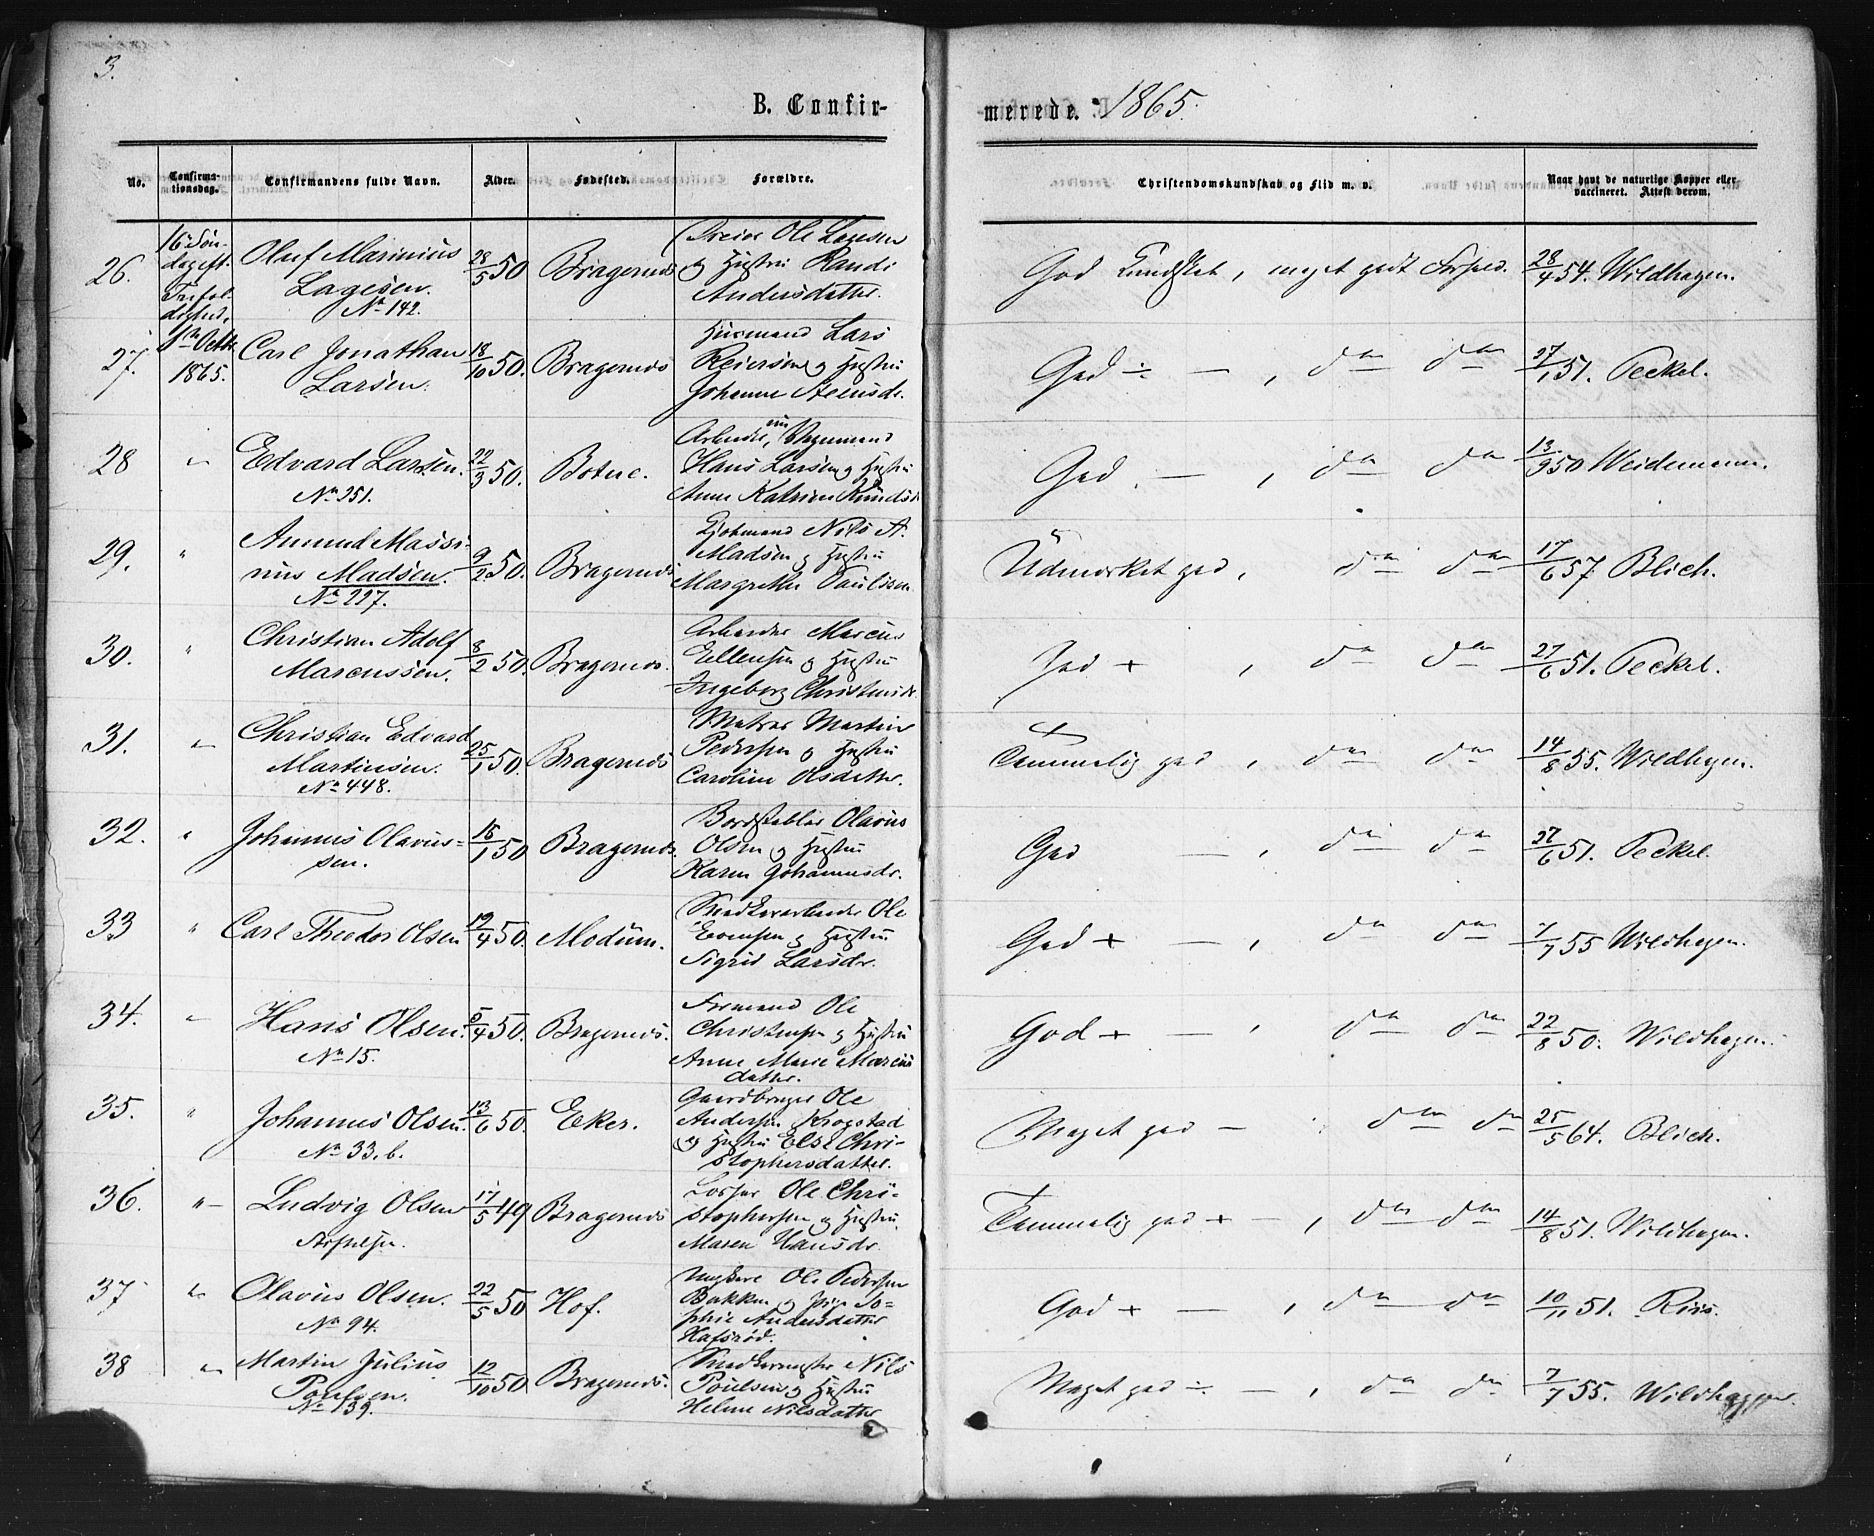 3.
B. Confir-
merede. 1865.
No.
Confirma-
tionsdag.
Confirmandens fulde Navn.
Alder.
Fødested.
Forældre.
Christendomskundskab og Flid m. v.
Naar havt de naturlige Kopper eller
vaccineret. Attest derom.
26.
16 Søn-
dag eft.
Trefol-
dighed,
Oluf Marinius
Lagesen.
No 142.
28/5 50
Bragernes
Ole Lagesen
og Hustru Randi
Andersdatter.
God Kundskab, meget godt Forhold.
28/4 54. Wildhagen.
27.
1ste Octbr
1865.
Carl Jonathan
Larsen.
18/10 50.
Bragernes
Huusmand Lars
Reiersen og Hustru
Johanne
God ÷ — , do do
27/1 51. Peckel.
28
"
Edvard Larsen.
No 251.
22/3 50.
Botne.
Hans Larsen og Hustru
Anne Katrine Knudsd.
God. — , do do
13/9 50 Weidemann.
29.
"
Amund Massi-
nius Madsen.
No 227.
9/2 50.
Bragernes
Nils A.
Madsen og Hustru
Margrethe Paulssen
Udmærket god, do do
17/6 57. Blich.
30.
"
Christian Adolf
Marcussen.
8/2 50.
Bragernes.
Arbeider Marcus
Ellensen og Hustru
Ingeborg
God + , do do
27/6 51. Peckel.
31.
"
Christian Edvard
Martinsen.
No 448.
25/1 50.
Bragernes
Matros Martin
Pedersen og Hustru
Caroline Olsdatter.
+
Temmelig god , do do
14/8 55. Wildhagen.
32.
"
Johannes Olavus-
sen.
16/1 50
Bragernes.
Bordstabler Olavus
Olsen og Hustru
Karen Johannesdr.
God — , do do
27/6 51. Peckel.
33
"
Carl Theodor Olsen
19/4 50.
Modum.
Snedkerarbeider Ole
Evensen og Hustru
Sigrid Larsdr.
God + — , do do
7/7 55 Wildhagen.
34.
"
Hans Olsen.
No 15.
5/4 50.
Bragernes.
Ole
Christensen og Hustru
Anne Marie Marcus
datter.
God + — , do do
22/8 50. Wildhagen.
35.
"
Johannes Olsen.
No 33. b.
13/6 50.
Eker.
Gaardbruger Ole
Andersen Krogstad
og Hustru Else Chri-
stophersdatter.
Meget god — do do
25/5 64. Blich.
36.
"
Ludvig Olsen
17/5 49
Bragernes
Ole Chri-
stophersen og Hustru
Maren Hansdr.
Temmelig god + — , do do
14/8 51. Wildhagen.
37
"
Olavus Olsen.
No 94.
22/5 50
Hof.
Ungkarl Ole Pedersen
Bakken og Pige So-
phie Andersdatter
Hafsrød.
God + — , do do
10/11 51. Riis.
38
"
Martin Julius
Poulsen.
No 139.
12/10 50
Bragernes.
Snedkermester Nils
Poulsen og Hustru
Helene Nilsdatter
Meget god ÷ — , do do
7/7 55. Wildhagen.